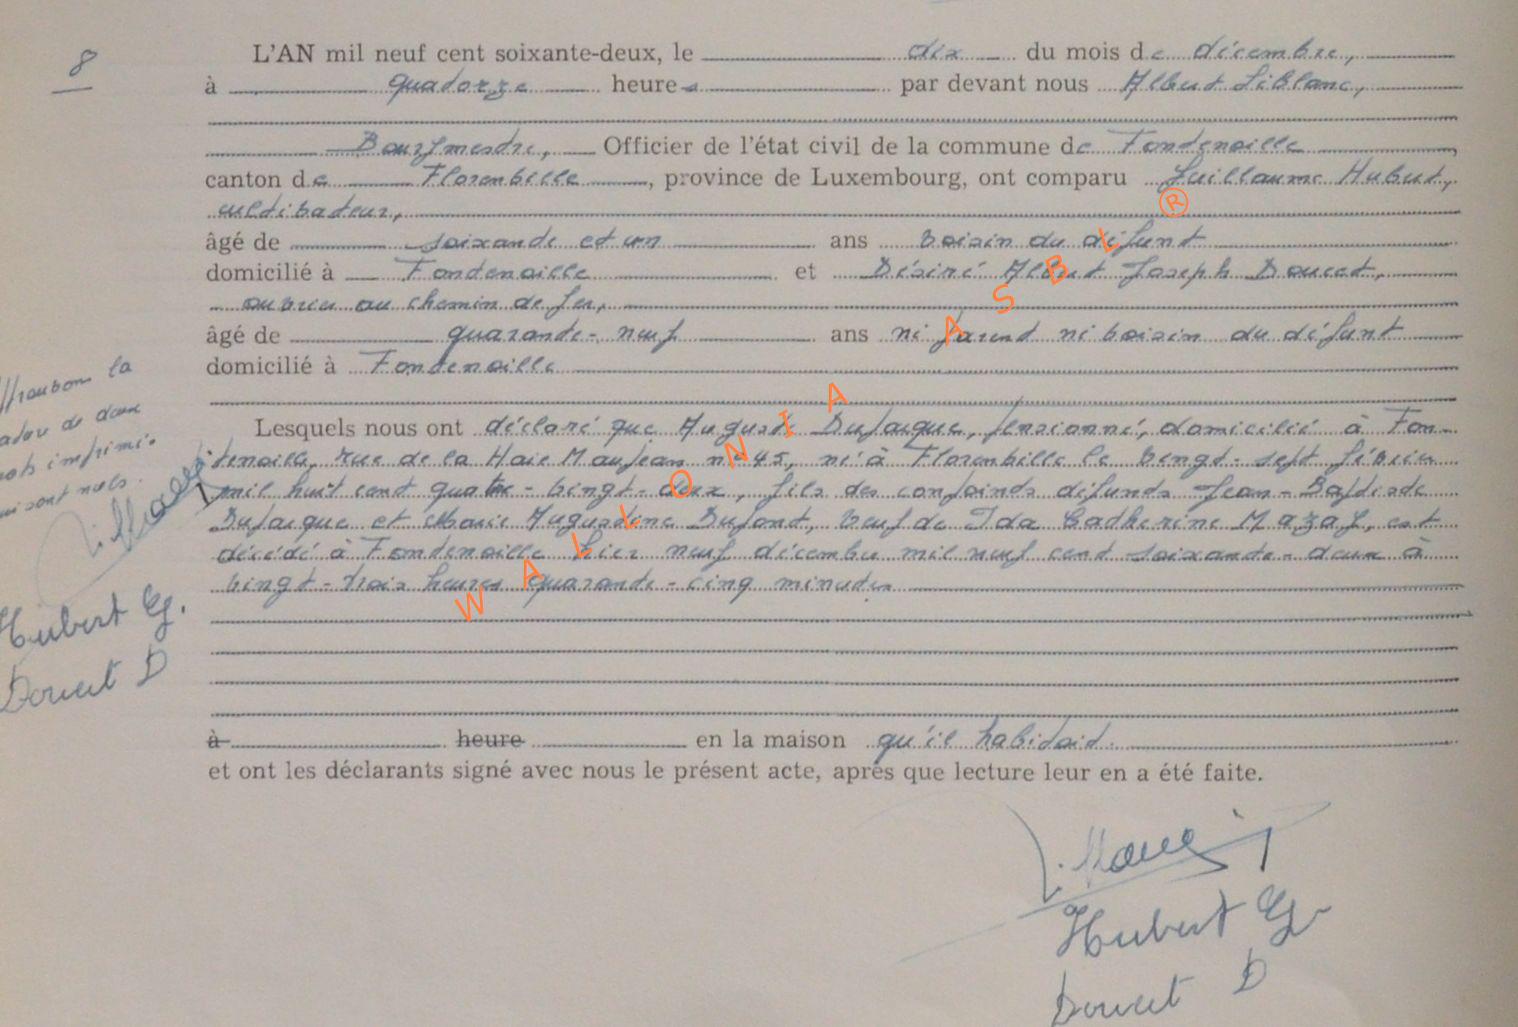 8
L'AN mil neuf cent soixante-deux, le dix du mois de décembre,
à quatorze heures par devant nous Albert Leblanc,
Bourgmestre, Officier de l'état civil de la commune de Fontenoille
canton de Florenville, province de Luxembourg, ont comparu Guillaume Hubert,
cultivateur,
âgé de soixante et un ans voisin du défunt
domicilié à Fontenoille et Désiré Albert Joseph Doucet,
ouvrier au chemin de fer,
âgé de quarante-neuf ans ni parent ni voisin du défunt
domicilié à Fontenoille
Lesquels nous ont déclaré que Auguste Dufarque, pensionné, domicilié à Fon-
tenoille, rue de la Haie Maujean n° 45, né à Florenville le vingt-sept février
mil huit cent quatre-vingt-deux, fils des conjoints défunts Jean-Baptiste
Dufarque et Marie Augustine Dupont, veuf de Ida Catherine Mazay, est
décédé à Fontenoille hier neuf décembre mil neuf cent soixante-deux à
vingt-trois heures quarante-cinq minutes
à heure en la maison qu'il habitait.
et ont les déclarants signé avec nous le présent acte, après que lecture leur en a été faite.
Hubert G.
Doucet D
Approuvons la
rature de deux
mots imprimés
qui sont nuls.
Hubert G.
Doucet D
WALLONIA ASBL ®